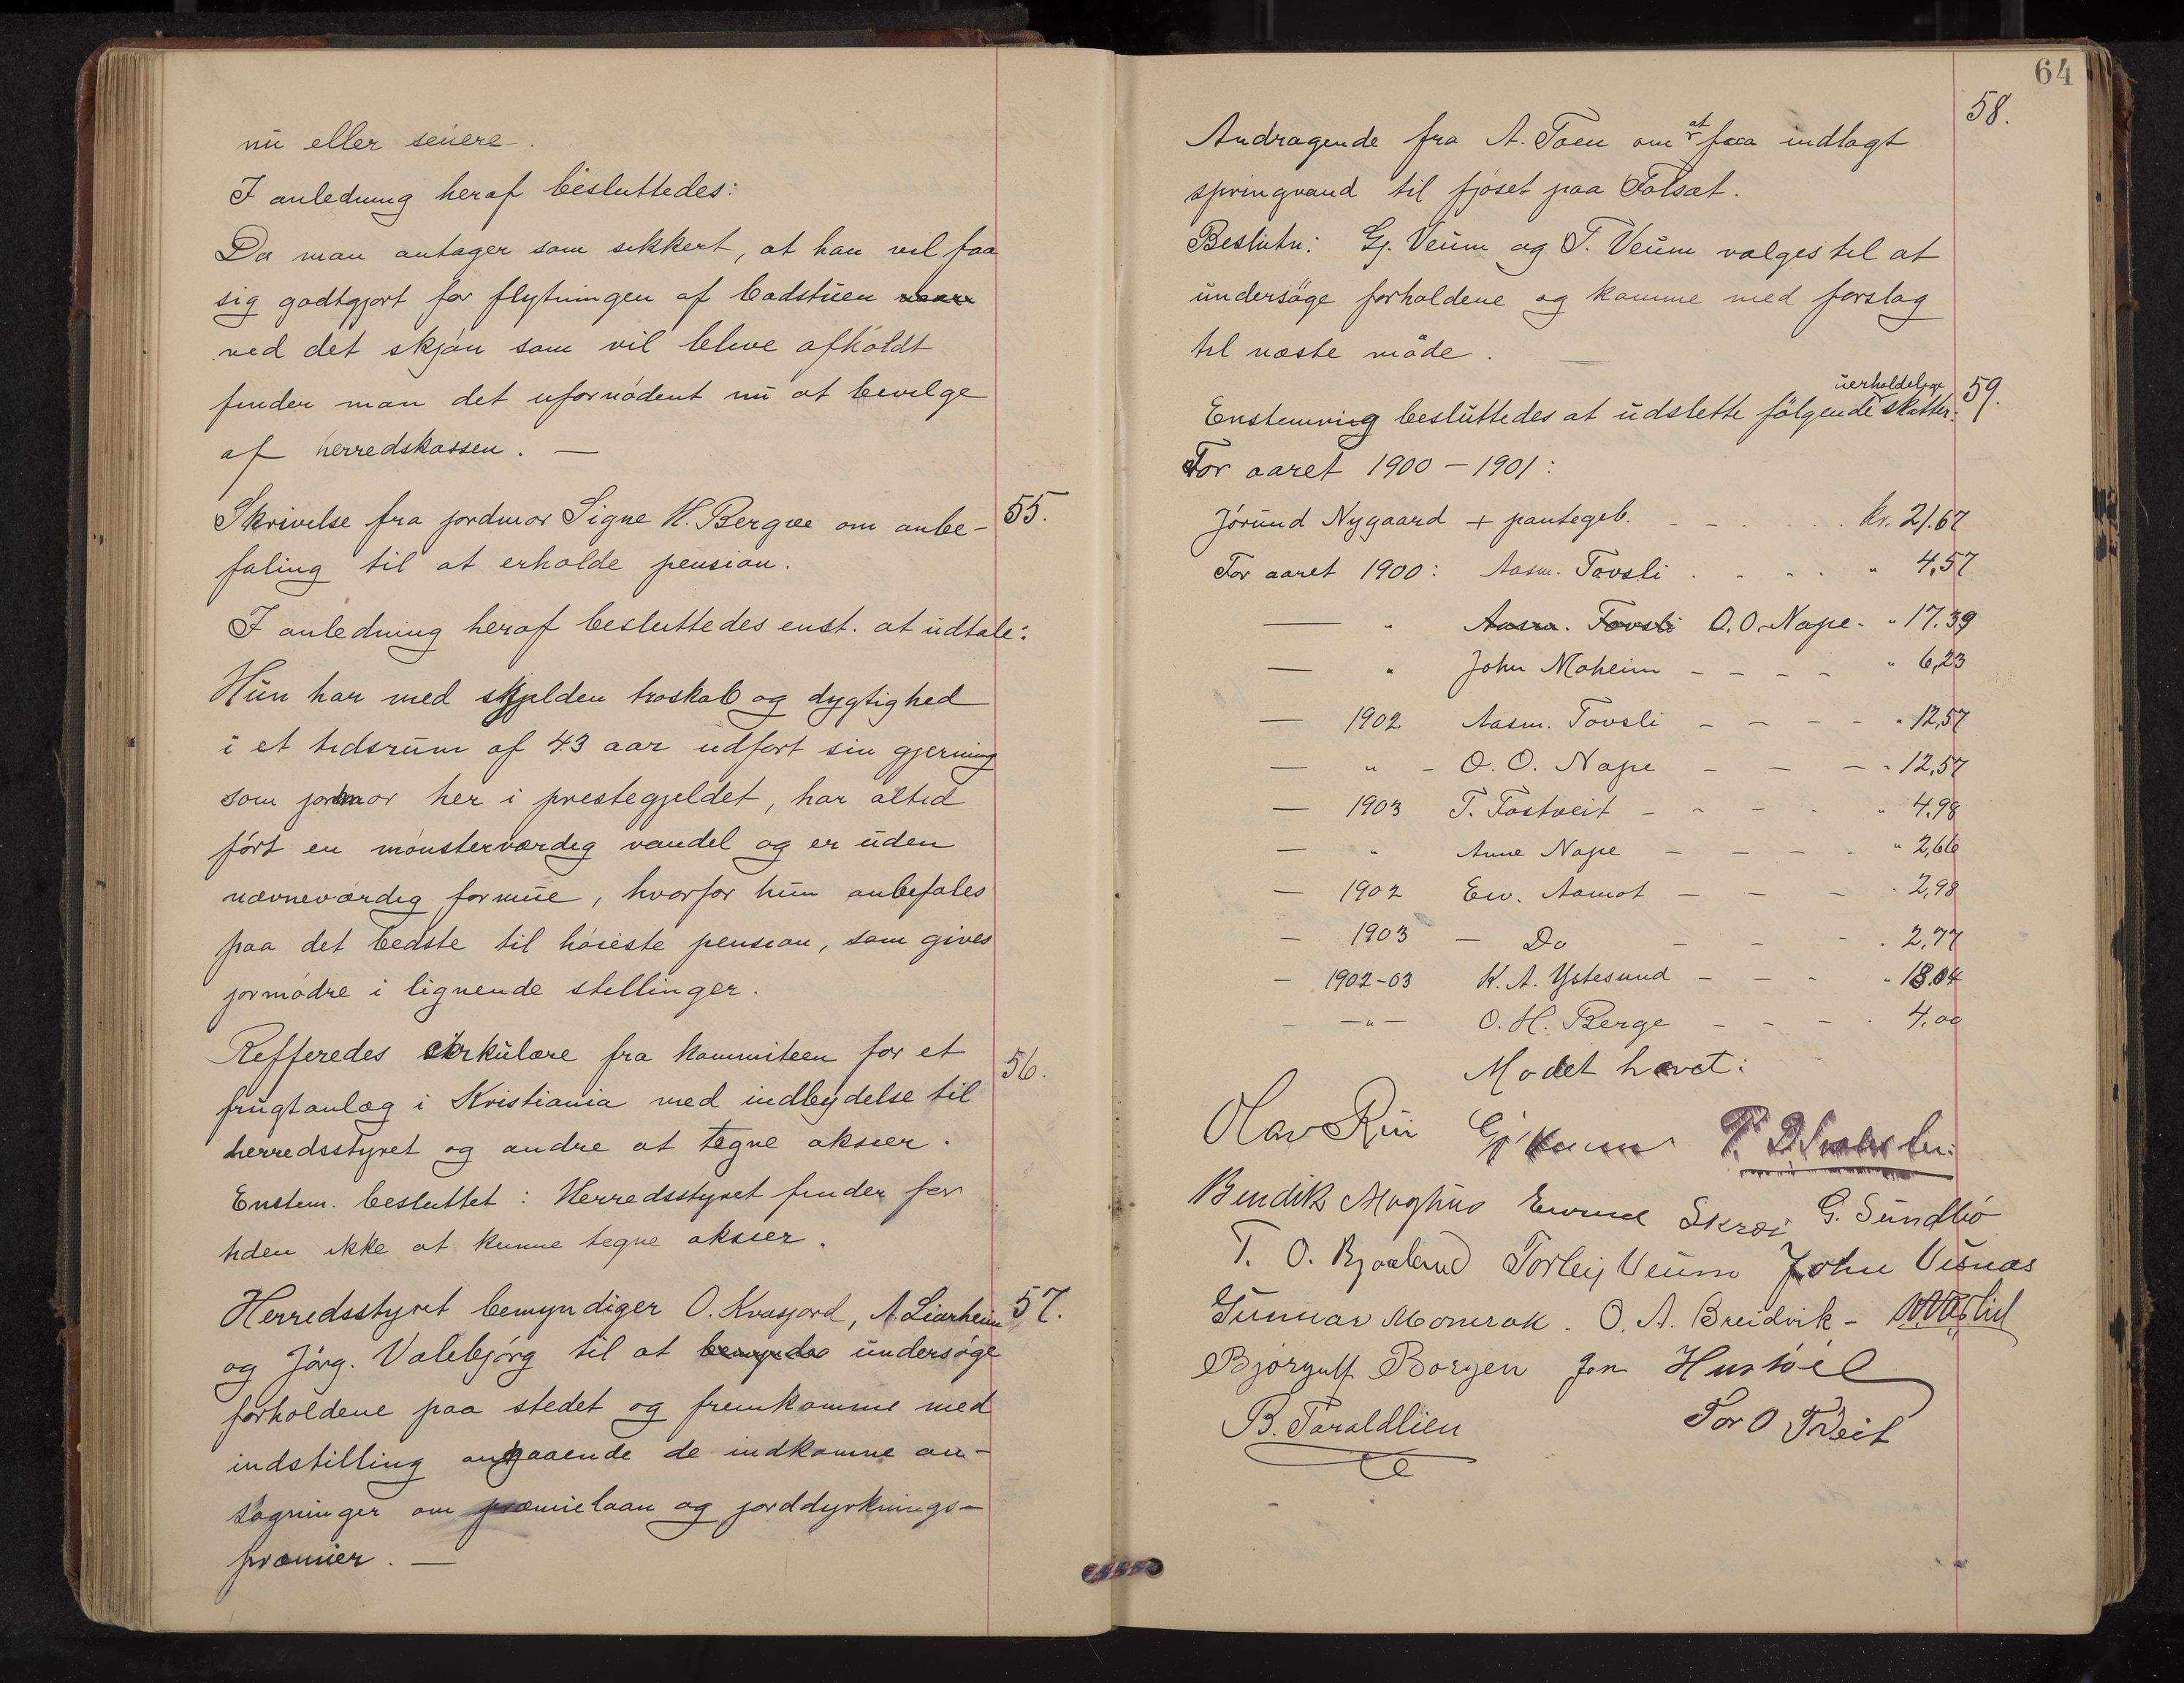 nu eller senere.
I anledning heraf besluttedes:
Da man antager som sikkert, at han vil faa
sig godtgjort for flytningen af badstuen
ved det skjøn som vil blive afholdt
finder man det ufornødent nu at bevilge
af herredskassen. —
Skrivelse fra jordmor Signe H. Bergve om anbe- 55.
faling til at erholde pension.
I anledning heraf besluttedes enst. at udtale:
Hun har med skjelden troskab og dygtighed
i et tidsrum af 43 aar udført sin gjerning
som jordmor her i prestegjeldet, har altid
ført en mønsterværdig vandel og er uden
nævneværdig formue, hvorfor hun anbefales
paa det bedste til høieste pension, som gives
jormødre i lignende stillinger.
Refferedes cirkulære fra kommiteen for et 56.
frugtanlæg i Kristiania med indbydelse til
herredsstyret og andre at tegne aksier.
Enstem. besluttet: Herredsstyret finder for
tiden ikke at kunne tegne aksier.
Herredsstyret bemyndiger O. Kvasjord, A. Liarheim 57.
og Jørg. Valebjørg til at undersøge
forholdene paa stedet og fremkomme med
indstilling angaaende de indkomne an-
søgninger om præmielaan og jorddyrknings-
præmier. —
64
58.
Andragende fra A. Toen om at faa indlagt
springvand til fjøset paa Følsæt.
Beslutn: Gj. Veum og T. Veum vælges til at
undersøge forholdene og komme med forslag
til næste møde. —
Enstemmig besluttedes at udslette følgende uerholdelige skatter: 59.
For aaret 1900 – 1901:
Jørund Nygaard + pantegeb. - - . . . . kr. 21.67
For aaret 1900: Aasm. Tovsli . . . . " 4,57
— " Aasm. Tovsli O.O. Nape - " 17.39
— " John Moheim - - - - " 6,23
— 1902 Aasm. Tovsli - - - - " 12,57
— " - O. O. Nape - - - " 12,57
— 1903 T. Fostveit - - - . " 4.98
— " Anne Nape - - - . " 2,66
— 1902 Ew. Aamot - - - . 2,98
— 1903 - Do - - - . 2,77
— 1902-03 K. A. Ystesund - - - " 18.04
- —"— O. H. Berge - - - . 4.00
Mødet hævet:
Olav Rui
Bendik Moghus Skræi G. Sundbø
T. O. Bjaaland Torleif Veum John Visnæs
Gunnar Momrak. O. A. Breidvik -
Bjørgulf Borgen Jon Hustveit
B. Taraldlien Tor O Tveit